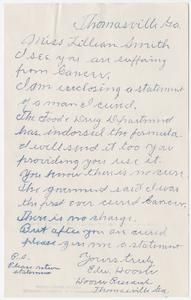 Thomasville Ga.
Miss Lillian Smith
I see you are suffering
from Cancer.
I am enclosing a statement
of a man I cured.
The Food & Drug Department
has indorsed the formula.
I will send it too you
providing you use it.
You know there is no cure.
The government said I was
the first ever cured Cancer.
There is no charge.
But after you are cured
please give me a statement
Yours truly
P.S.
Please return
statement
Hoover
Thomasville Ga.